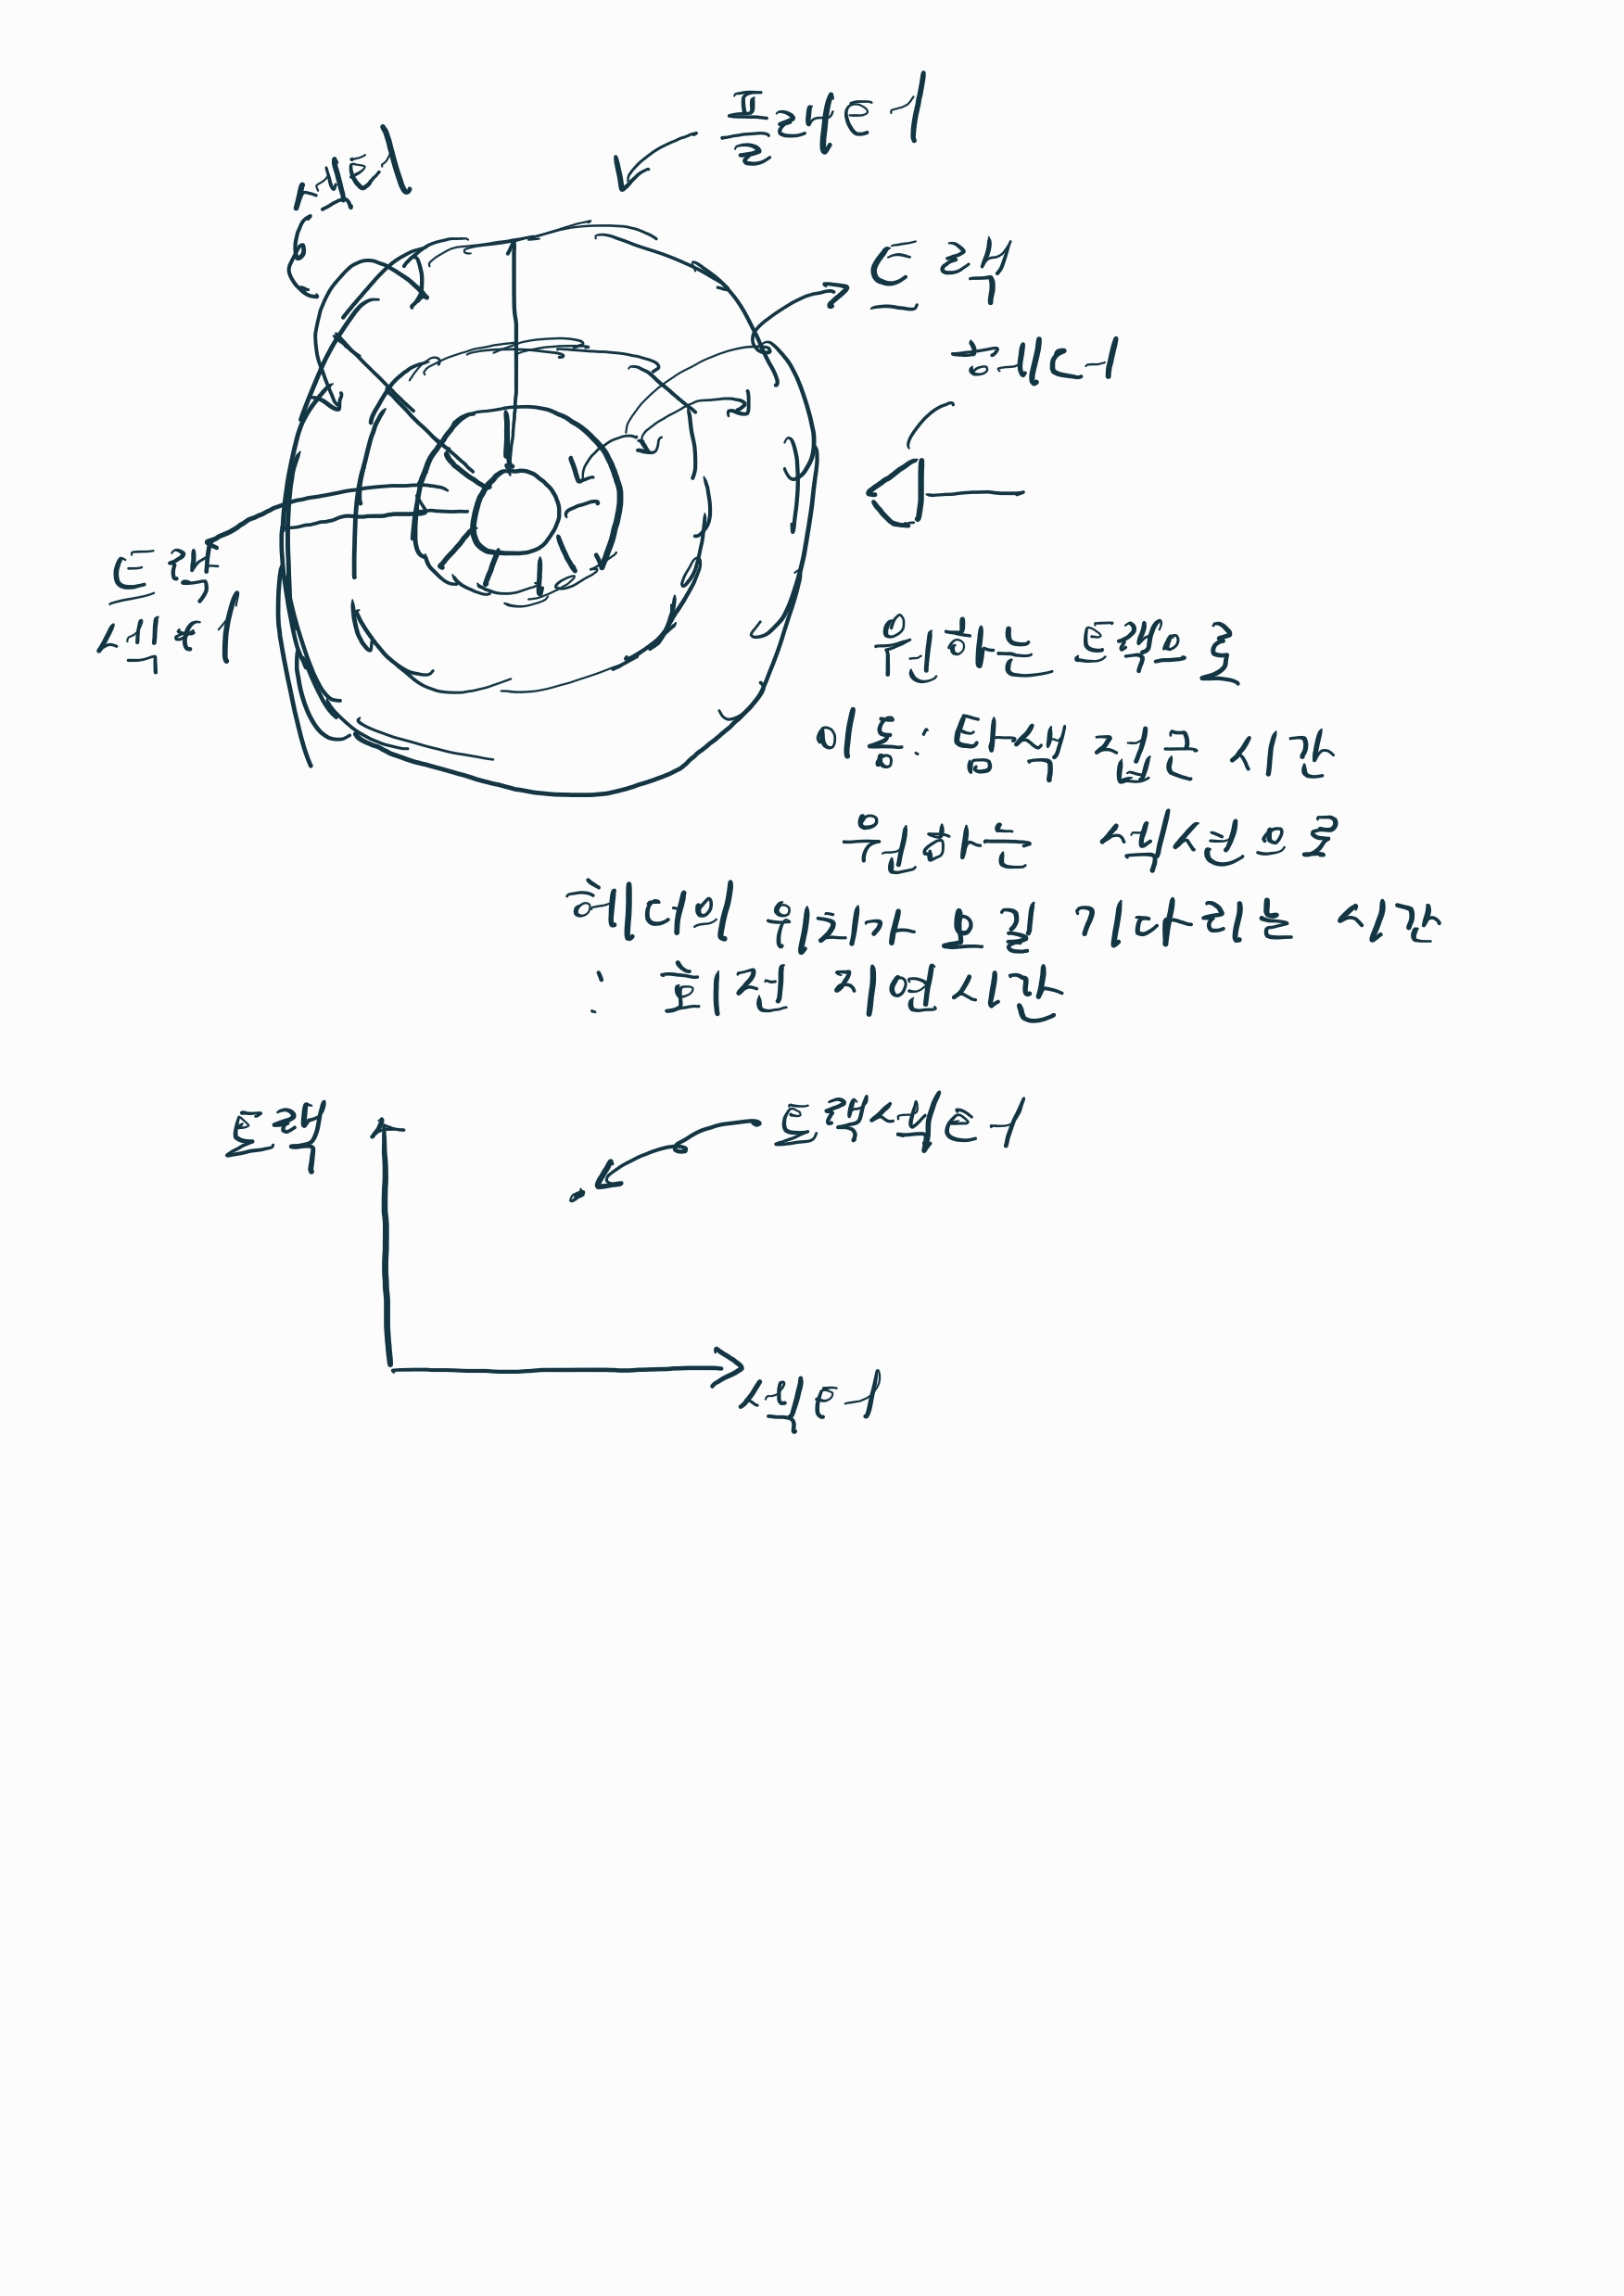 플래터
섹터
트랙
헤더
트랙
섹터
원하는 트랙으로
이동: 탐색 접근 시간
원하는 섹션으로
헤더에 위치가 오길 기다리는 시간
: 회전 지연시간
트랙
트랙섹터
섹터